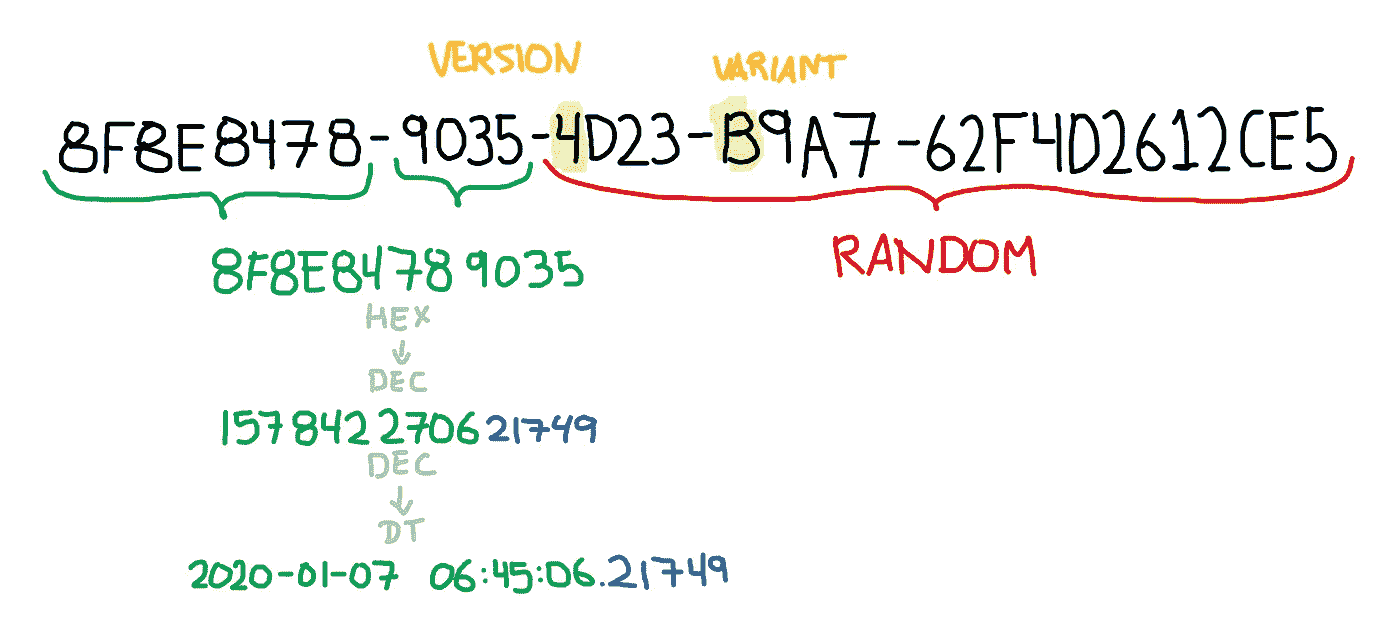 VERSION VARIANT
8F8E8478-9035-4D23-B9A7-62F4D2612CE5
RANDOM
8F8E84789035
HEX
↓
DEC
157842270621749
DEC
↓
DT
2020-01-07 06:45:06.21749